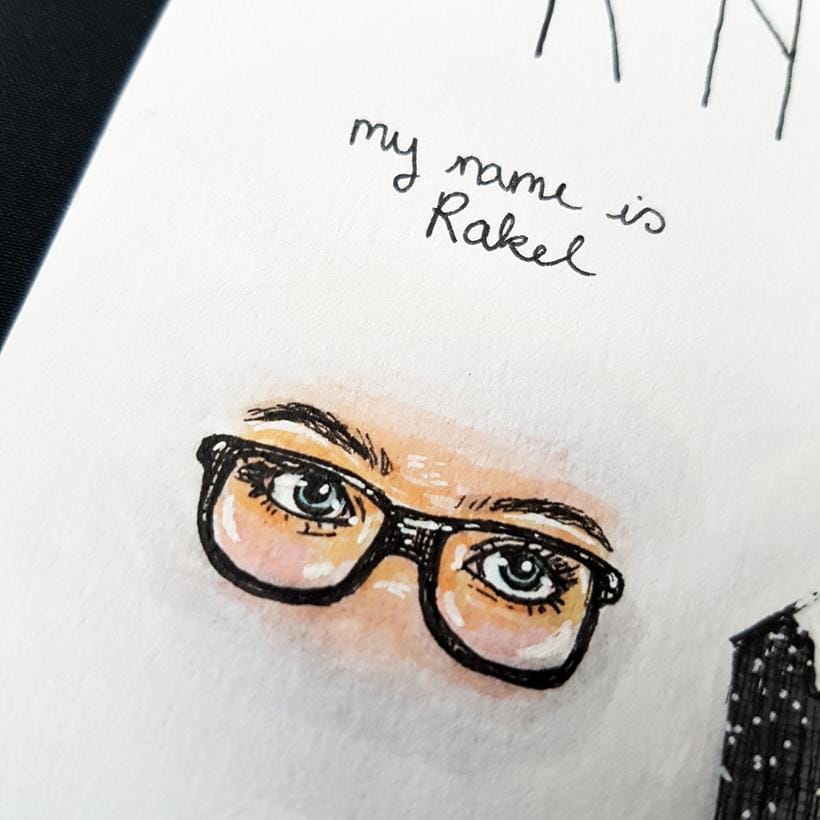 my name is
Rakel